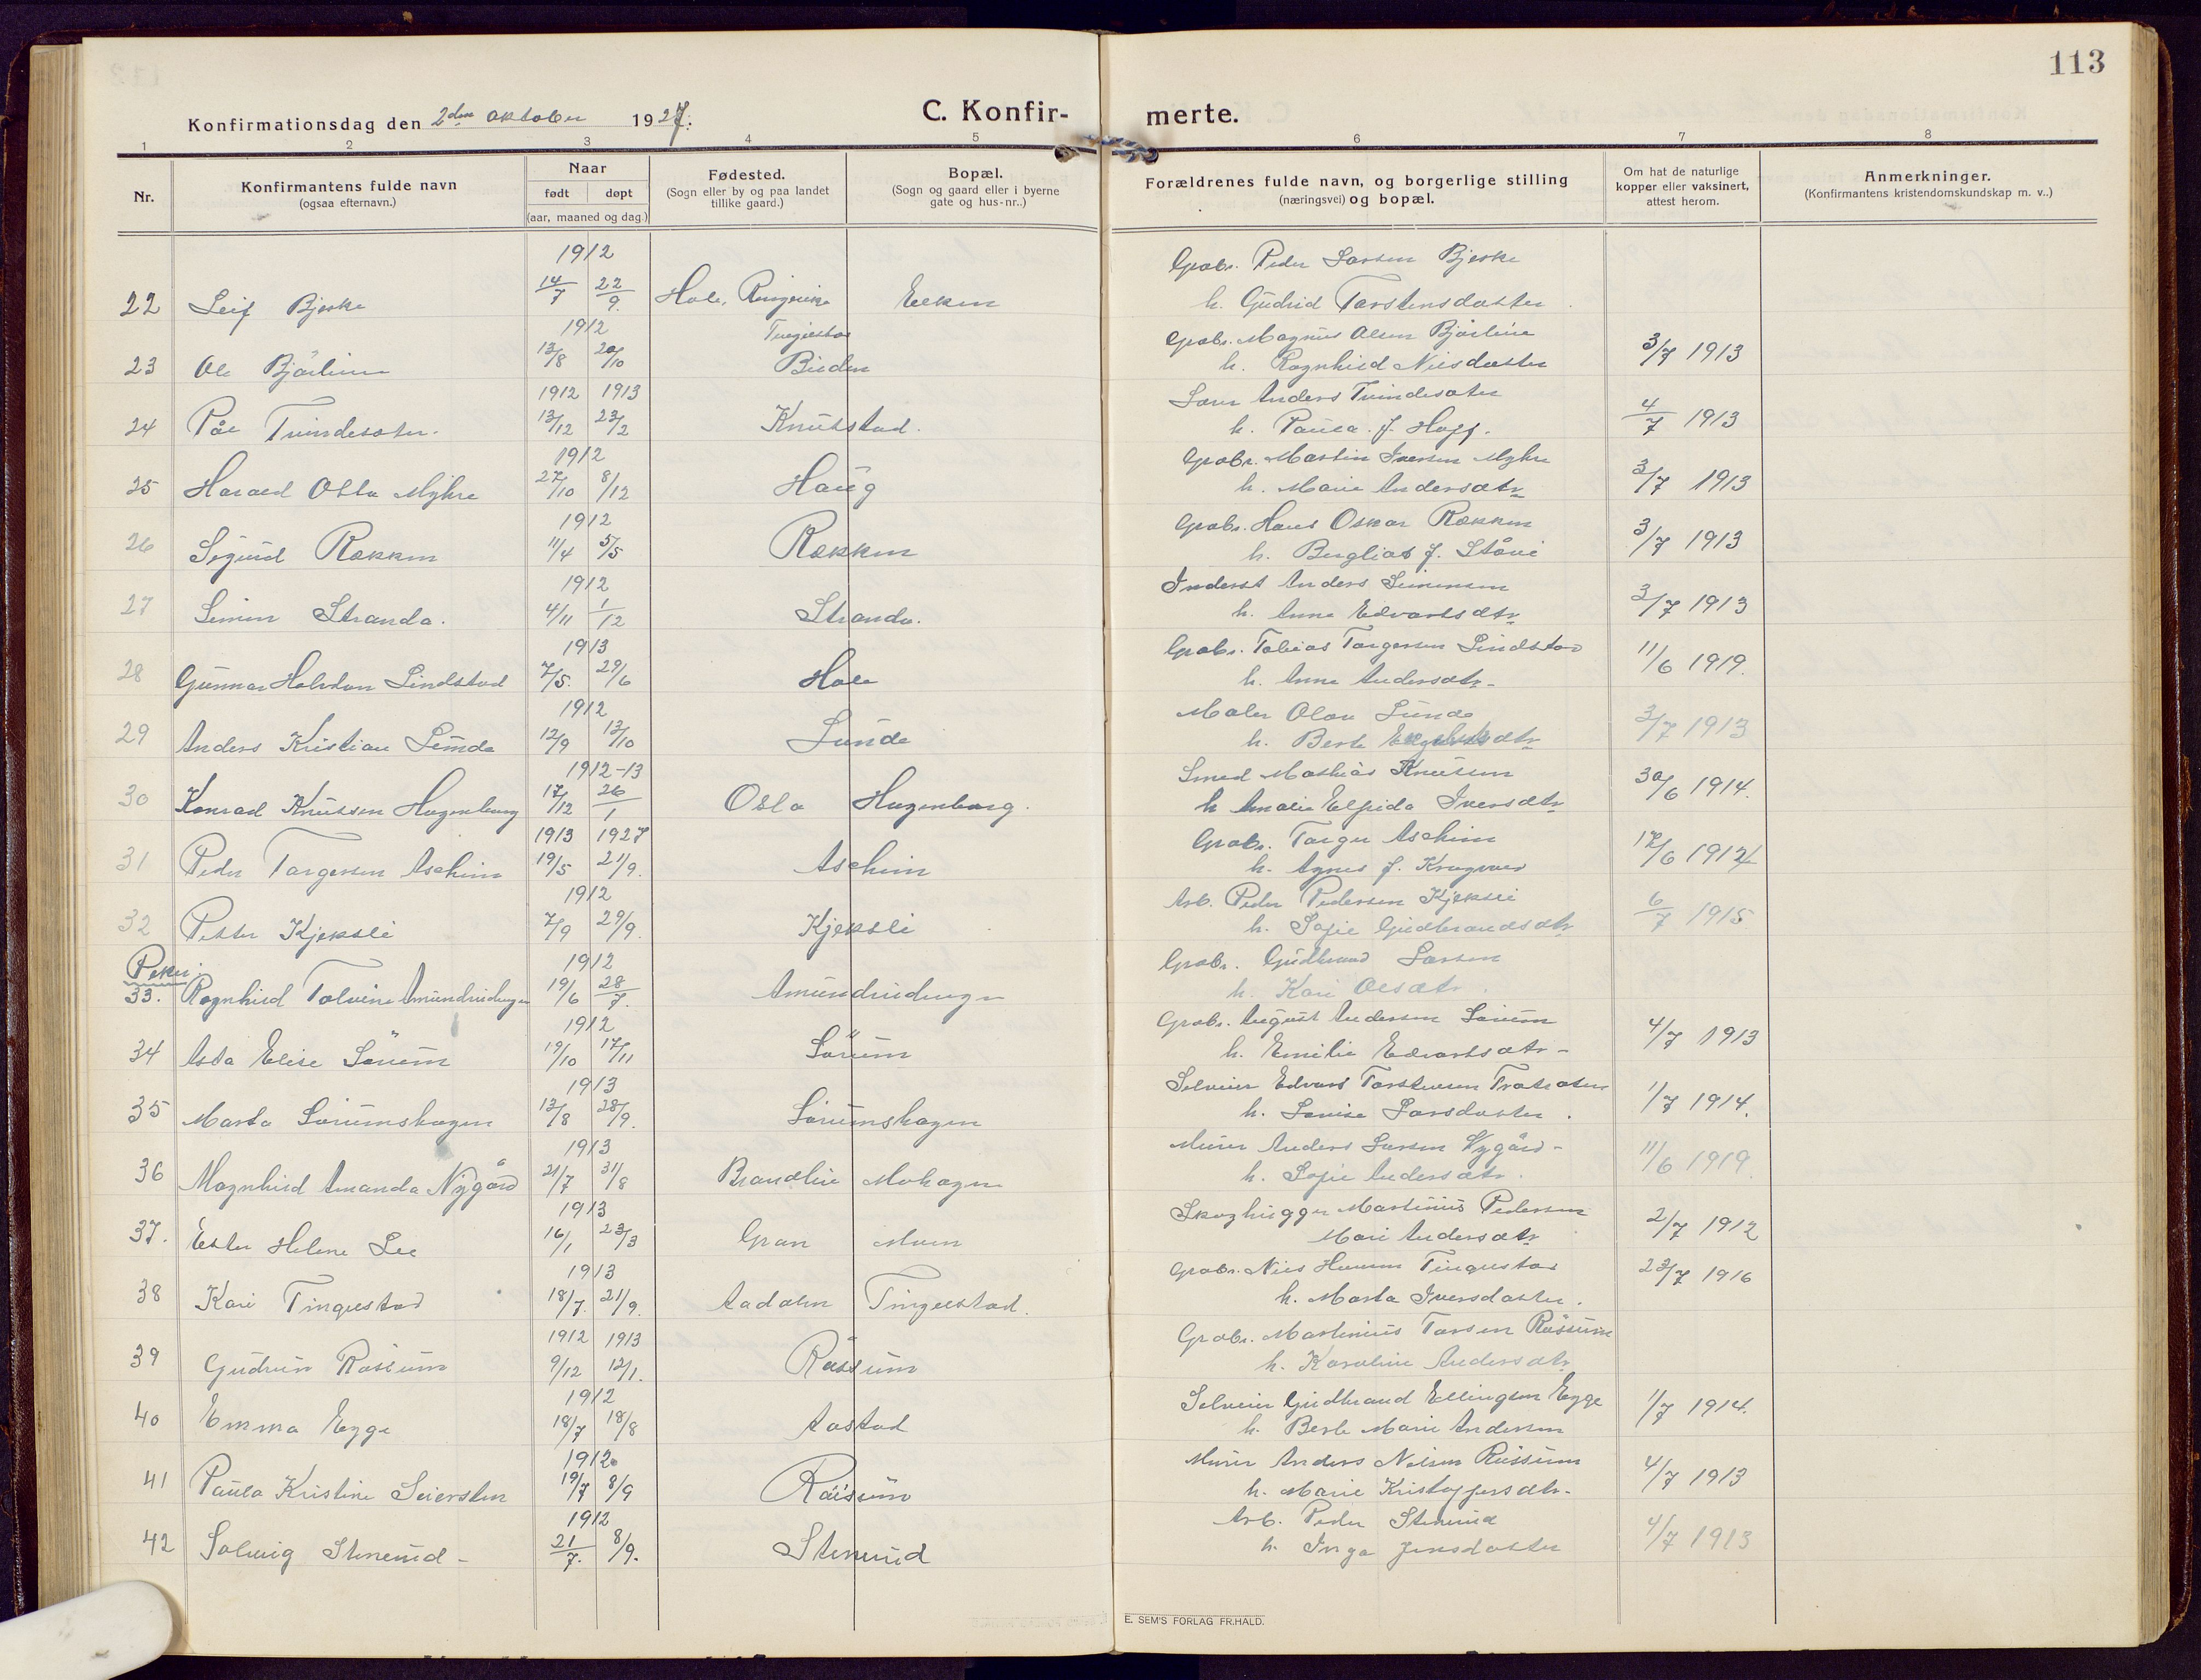 113
Konfirmationsdag den 2den oktober 1927.
C. Konfirmerte.
1 2 3 4 5 6 7 8
Nr.
Konfirmantens fulde navn
(ogsaa efternavn.)
Naar
født døpt
(aar, maaned og dag.)
Fødested.
(Sogn eller by og paa landet
tillike gaard.)
Bopæl.
(Sogn og gaard eller i byerne
gate og hus-nr..)
Forældrenes fulde navn, og borgerlige stilling
(næringsvei) og bopæl.
Om hat de naturlige
kopper eller vaksinert,
attest herom.
Anmerkninger.
(Konfirmantens kristendomskundskap m. v..)
1912 Grdbr. Peder Larsen Bjerke
22 Leif Bjerke 14/7 22/9. Hole, Ringerike h. Gudrid Torstensdatter
1912 Grdbr. Magnus Olsen
23 Ole 13/8 20/10 h. Ragnhild Nilsdatter 3/7 1913
1912 1913 Anders
24 Pål 13/12 23/2 Knutstad. h. Paula f. Hoff. 4/7 1913
1912 Grdbr. Martin Iversen Myhre
25 Harald Otto Myhre 27/10 8/12 Haug h. Marie Andersdtr 3/7 1913
1912 Grdbr. Hans Oskar Røkken
26 Sigurd Røkken 11/4 5/5 Røkken h. Bergliot f. 3/7 1913
1912 Inderst Anders Simensen
27 Simen Stranda. 4/11 1/12 Stranda. h. Anne Edvartsdtr 3/7 1913
1913 Grdbr. Tobias Torgersen Lindstad
28 Gunnar Halvdan Lindstad 7/5. 29/6 Hole h. Anne Andersdtr. 11/6 1919.
1912 Maler Olav Lunde
29 Anders Kristian Lunde 12/9 13/10 Lunde h. Berte 3/7 1913
1912-13 Smed Mathias Knutsen
30 Konrad Knutsen Hagenborg 17/12 26/1 Oslo Hagenborg. h Amalie Elfrida Iversdtr 30/6 1914.
1913 1927 Grdbr. Torger Aschim
31 Peder Torgersen Aschim 19/5 21/9. Aschim h. Agnes f.
1912 Arb. Peder Pedersen Kjeksli
32 Petter Kjeksli 7/9 29/9. Kjeksli h. Sofie Gudbrandsdtr 6/7 1915
Piker.
1912 Grdbr. Gudbrand Larsen
33. Ragnhild 19/6 28/7. h. Kari Olsdtr.
1912 Grdbr. August Andersen Sørum
34 Asta Elise Sørum 19/10 17/11 Sørum h. Emilie Edvartsdtr 4/7 1913
1913 Selveier Edvard Torstensen
35 Marta Sørumshagen 13/8 28/9. Sørumshagen h. Lovise Larsdatter. 1/7 1914.
1913 Murer Anders Larsen Nygård
36 Magnhild Amanda Nygård 21/7 31/8 Brandbu Mohagen h. Sofie Andersdtr. 11/6 1919.
1913 Skoghugger Martinius Pedersen
37. Ester Helene Lee 16/1 23/3 Gran Moen Mari Andersdtr 2/7 1912
1913 Grdbr. Nils Hansen Tingelstad
38 Kari Tingelstad 18/7. 21/9. Aadalen Tingelstad. h. Marta Iversdatter. 23/7 1916
1912 1913 Grdbr. Martinius Røssum
39 Gudrun Røssum 9/12 12/1. Røssum h. Karoline Andersdtr
1912 Selveier Gudbrand Ellingsen Egge
40 Emma Egge 18/7 18/8 Aastad h. Berte Marie Andersen 1/7 1914.
1912 Murer Anders Nilsen Røissum
41 Paula Kristine Seiersten 19/7 8/9 Røisum h. Marie Kristoffersdtr. 4/7 1913
1912 Arb. Peder Stenerud
42 Solveig Stenerud 21/7. 8/9. Stenerud h. Inga Jensdatter 4/7 1913
E. SEM'S FORLAG FR.HALD.